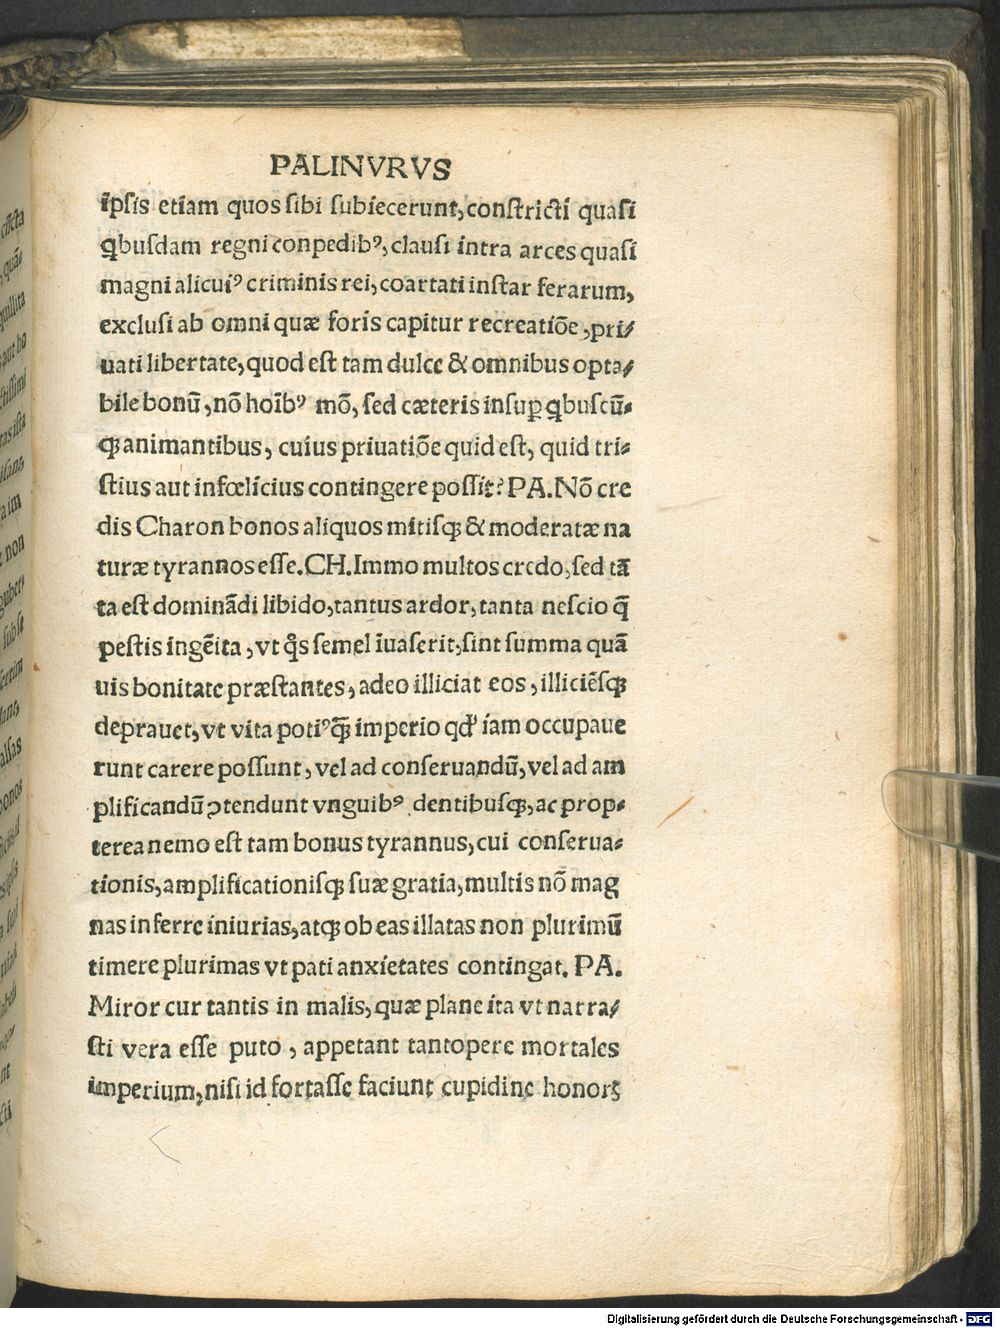 PALINVRVS
ĩpſis etiam quos ſibi ſubiecerunt, conſtricti quaſi
qͥbuſdam regni conpedibꝰ, clauſi intra arces quaſi
magni alicuiꝰ criminis rei, coartati inſtar ferarum,
excluſi ab omni quæ foris capitur recreatiõe, pri⸗
uati libertate, quod eſt tam dulce & omnibus opta⸗
bile bonũ, nõ hoĩbꝰ mõ, ſed cæteris inſuꝑ qͥbuſcũ⸗
qꝫ animantibus, cuius priuatiõe quid eſt, quid tri⸗
ſtius aut infœlicius contingere poſſit? PA. Nõ cre
dis Charon bonos aliquos mitiſqꝫ & moderatæ na
turæ tyrannos eſſe. CH. Immo multos credo, ſed tã
ta eſt dominãdi libido, tantus ardor, tanta neſcio q̃
peſtis ingẽita, vt qͥs ſemel ĩuaſerit, ſint ſumma quã
uis bonitate præſtantes, adeo illiciat eos, illiciẽſqꝫ
deprauet, vt vita potiꝰ qꝫ̃ imperio qd' iam occupaue
runt carere poſſunt, vel ad conſeruandũ, vel ad am
plificandũ ꝯtendunt vnguibꝰ dentibuſqꝫ, ac prop⸗
terea nemo eſt tam bonus tyrannus, cui conſerua⸗
tionis, amplificationiſqꝫ ſuæ gratia, multis nõ mag
nas inferre iniurias, atqꝫ ob eas illatas non plurimũ
timere plurimas vt pati anxietates contingat. PA.
Miror cur tantis in malis, quæ plane ita vt narra⸗
ſti vera eſſe puto, appetant tantopere mortales
imperium, niſi id fortaſſe faciunt cupidine honorꝭ
Digitalisierung gefördert durch die Deutsche Forschungsgemeinschaft - DFG